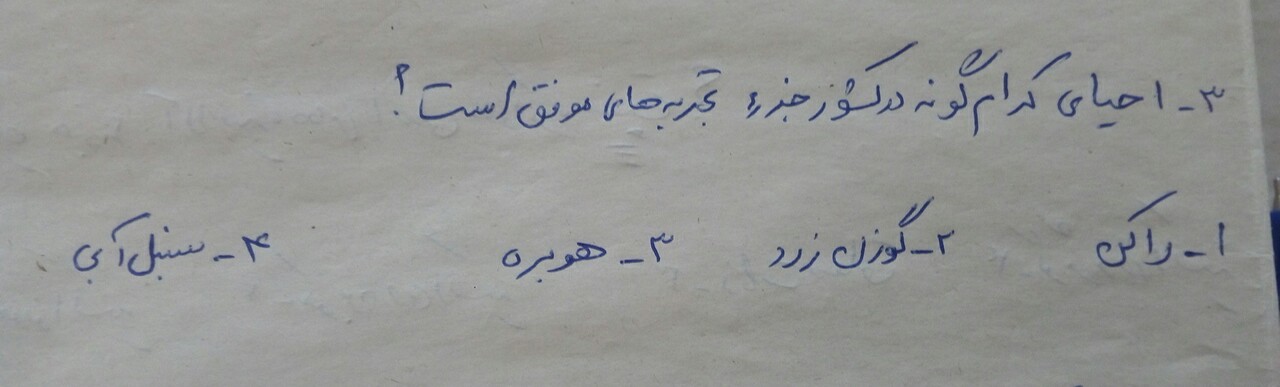 ۳- احیای کدام گونه در کشور جزء تجربه‌های موفق است؟
۱- راکن ۲- گوزن زرد ۳- هوبره ۴- سنبل آبی